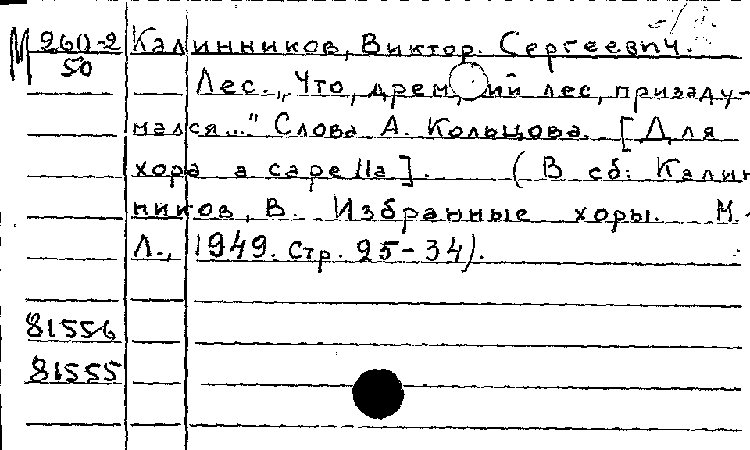 М 260-2
50
Калинников, Виктор. Сергеевич.
Лес. „Что, дрем ий лес, призаду-
мался..." Слова А. Кольцова. [Для
хора a capella]. (В сб: Калин
ников, В. Избранные хоры. М.-
Л., 1949. Стр. 25-34).
81556
81555